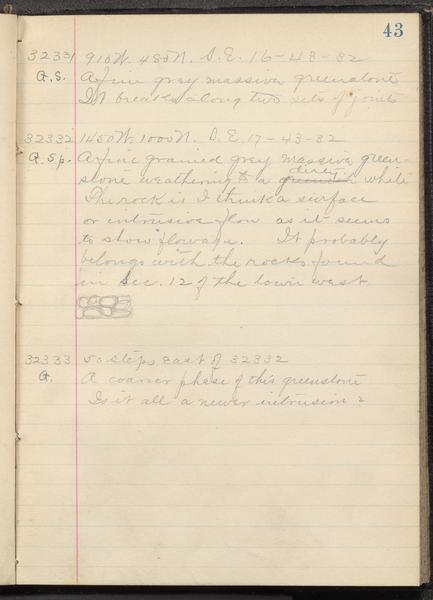 43
32331 910 W. 480 N. S.E. 16-43-32
G.S. A fine grey massive greenstone
It breaks along two sets of joints
32332 1450 W. 1000 N. S.E. 17-43-32
G. Sp. A fine grained grey massive green-
stone weathering to a dirty white
The rock is I think a surface
or intrusive flow as it seems
to show flowage. It probably
belongs with the rocks found
in Sec. 12 of the town west
32333 50 steps east of 32332
G. A coarser phase of this greenstone
Is it all a newer intrusion?